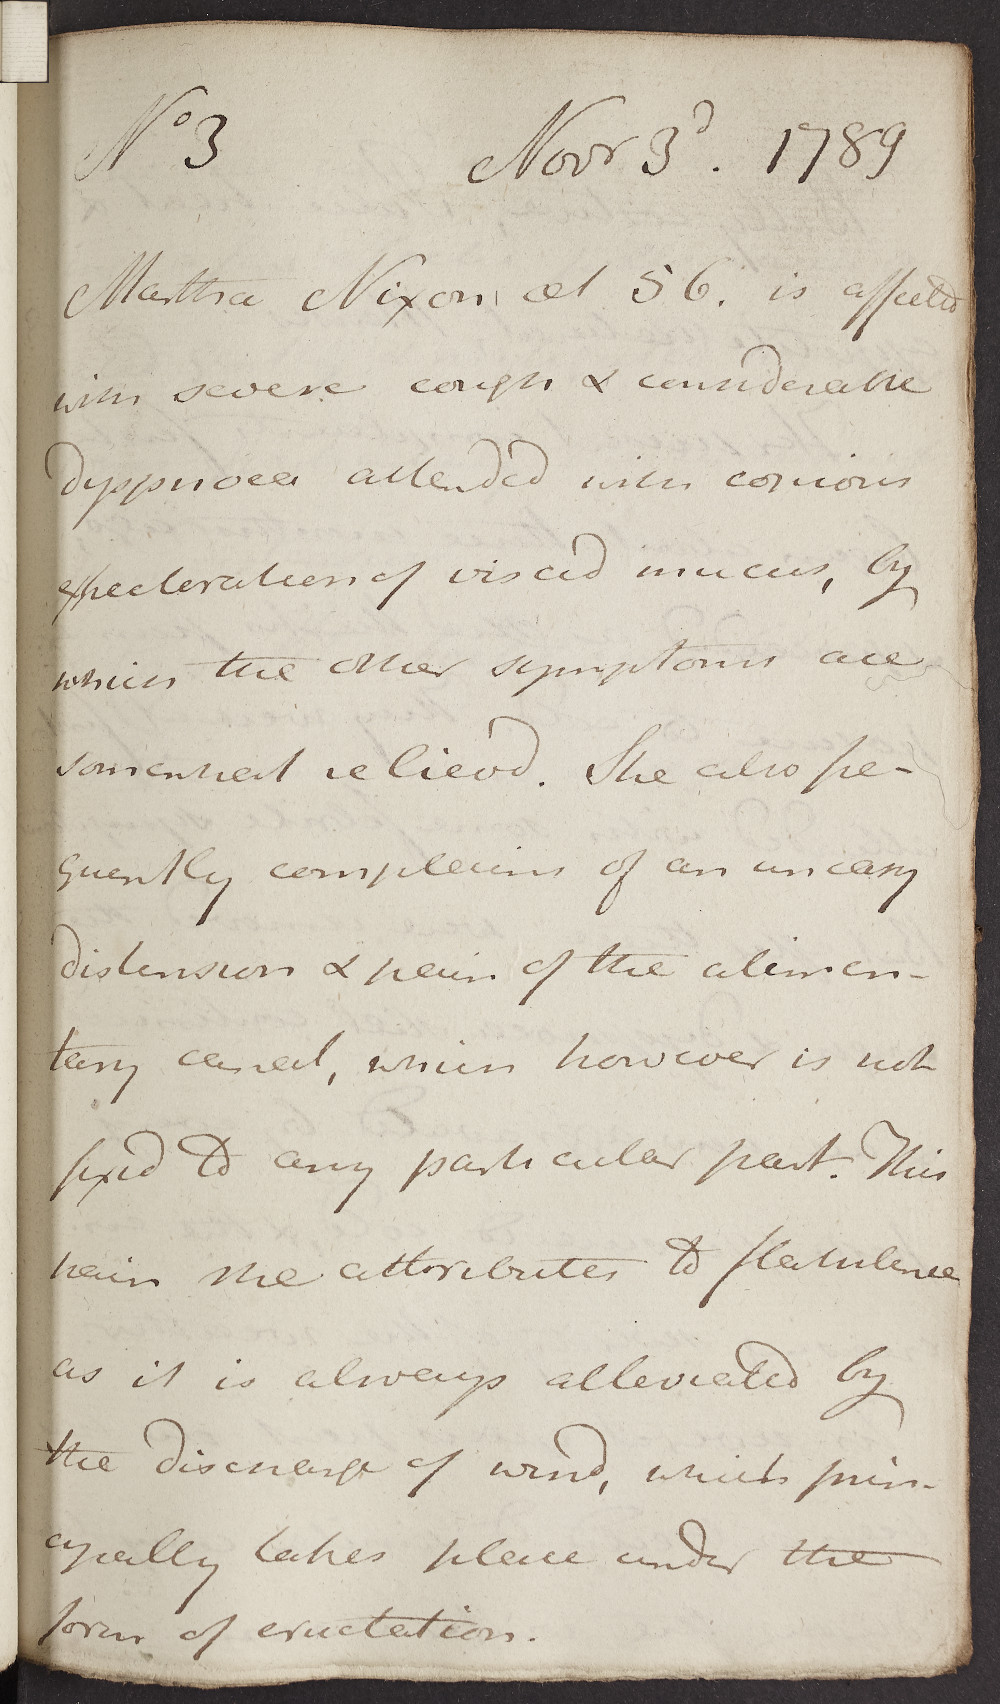 No 3 Novr 3d. 1789
Martha Nixon æt 56. is affected
with severe cough & considerable
dyspnoea attended with copious
expectoration of viscid mucus, by
which the other symptoms are
somewhat relievd. She also fre-
quently complains of an uneasy
distension & pain of the alimen-
tary canal, which however is not
fixd to any particular part. This
pain she attributes to flatulence
as it is always alleviated by
the discharge of wind, which prin-
cipally takes place under the
form of eructation.